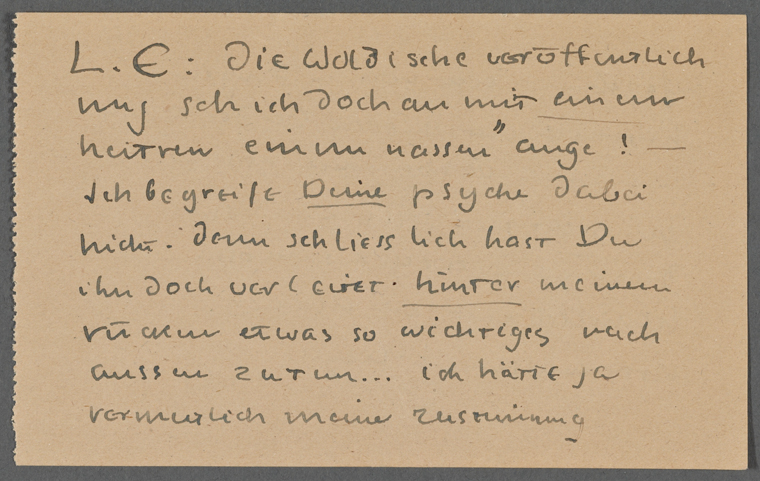 L. E: die Woldische veröffentlich
ung seh ich doch an mit einem
heitren einem nassen" auge! —
Ich begreife Deine psyche dabei
nicht. denn schliesslich hast Du
ihn doch verleitet. hinter meinem
rücken etwas so wichtiges nach
aussen zu tun... ich hätte ja
vermutlich meine zustimmung